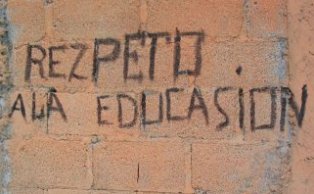 REZPETO.
ALA EDUCASION